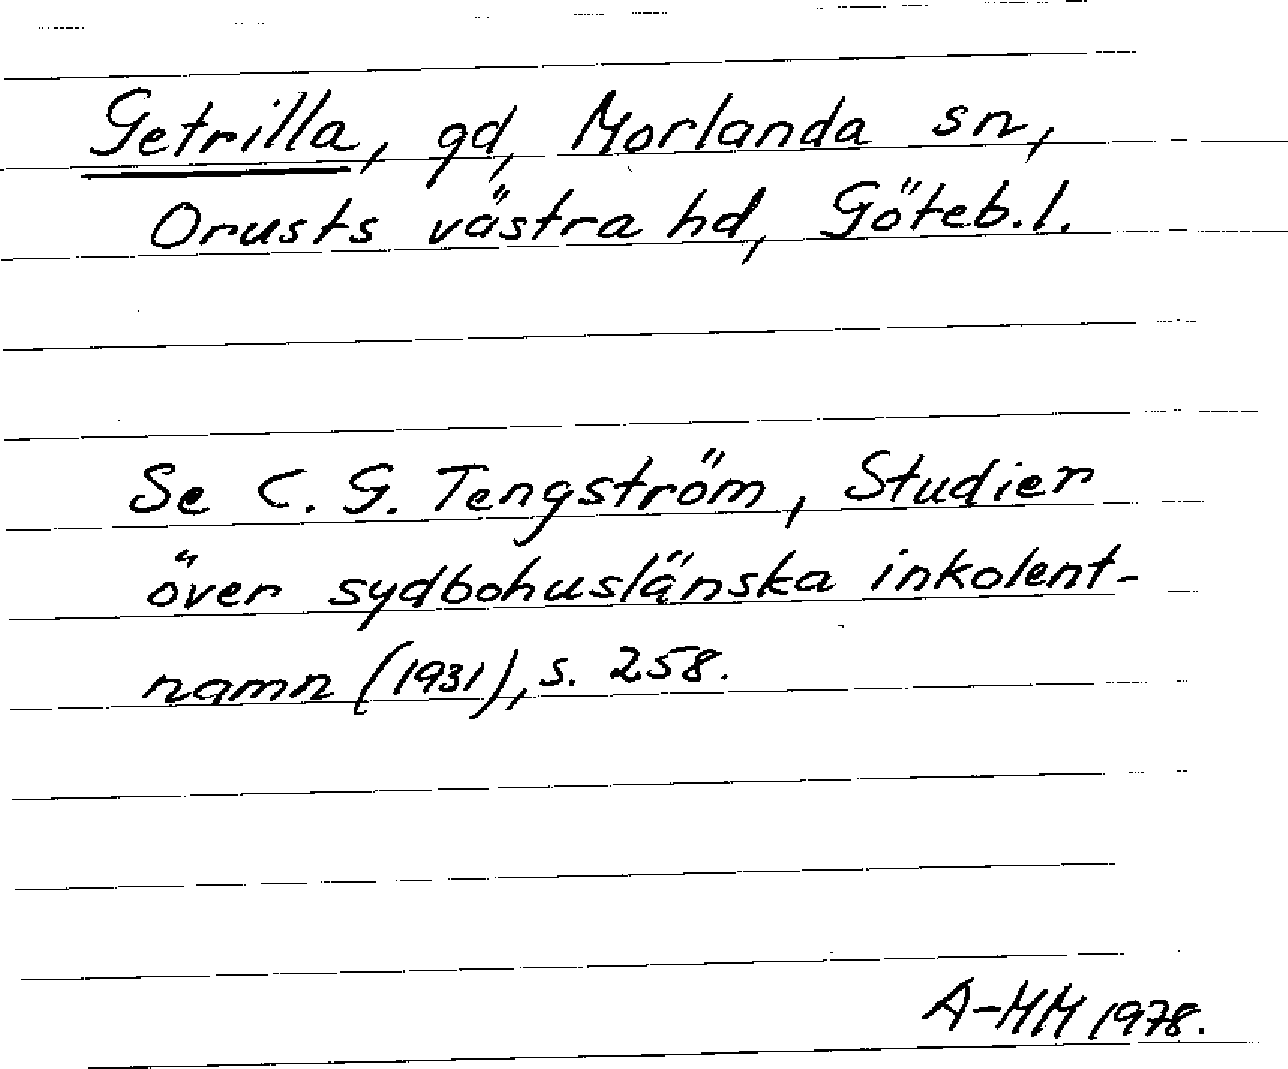 Getrilla, gd, Morlanda sn,
Orusts västra hd, Göteb.l.
Se C. G. Tengström, Studier
över sydbohuslänska inkolent-
namn (1931), s. 258.
A-MM 1978.